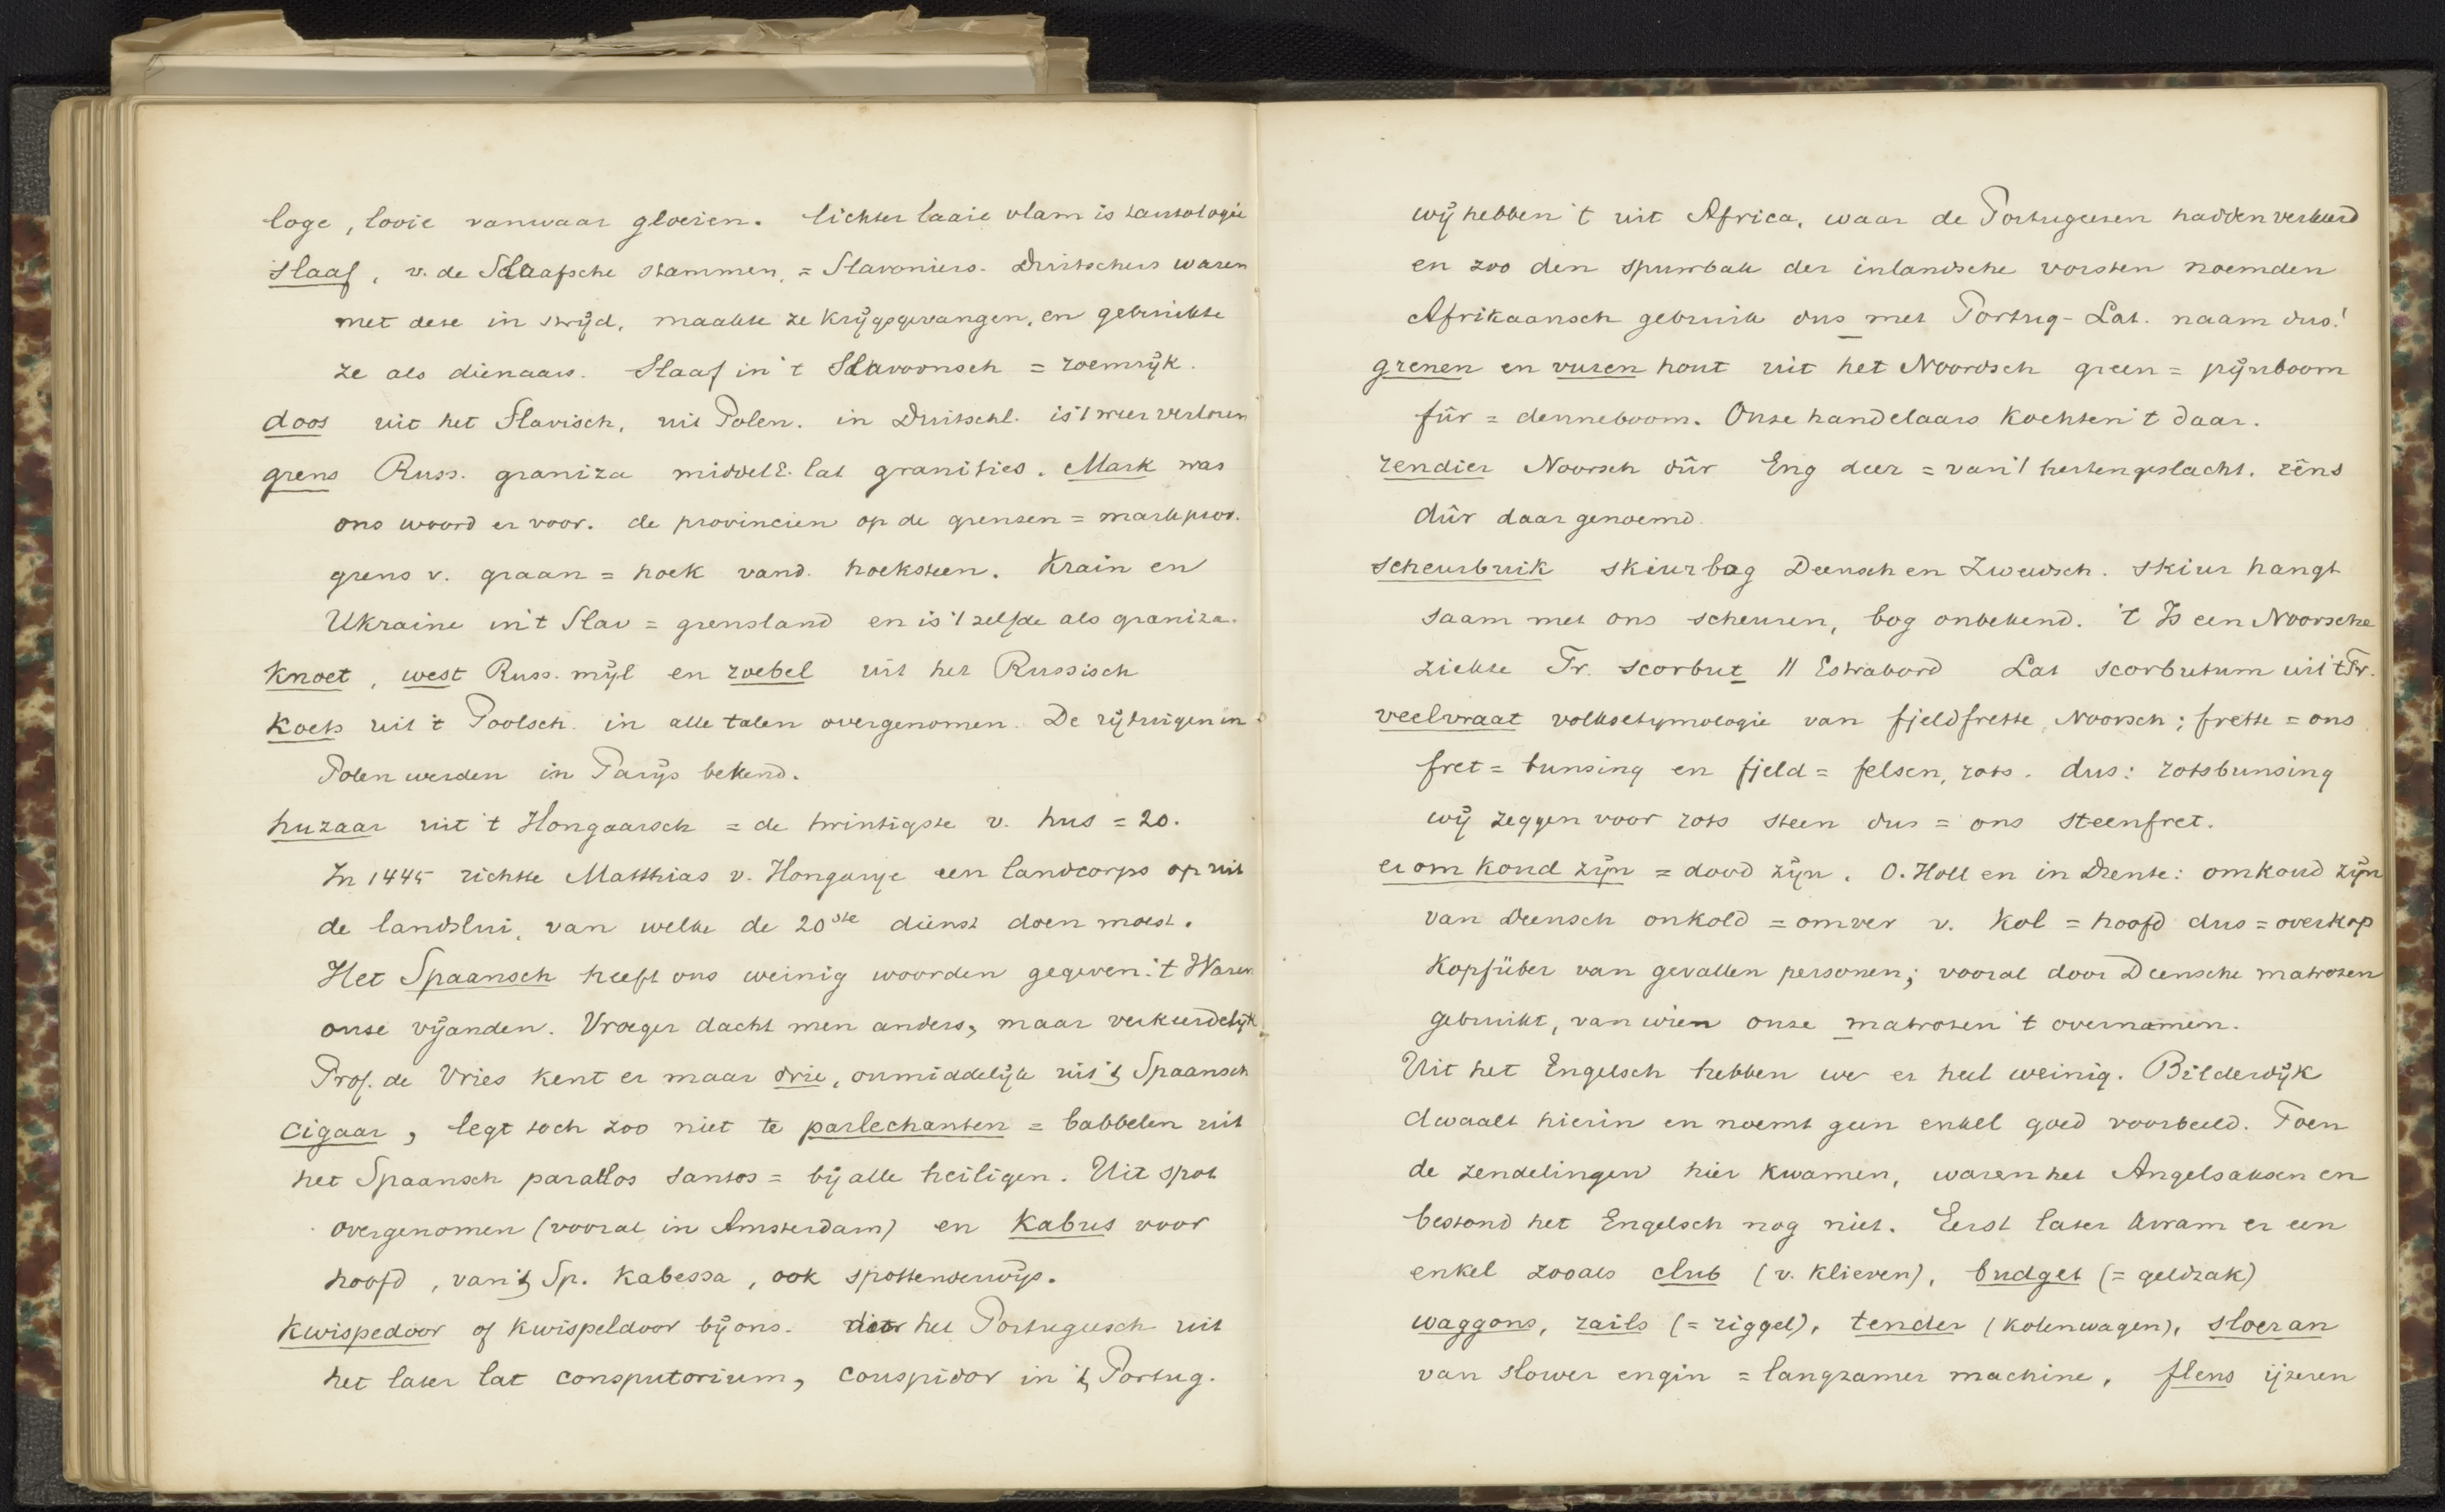 loge, looie vanwaar gloeien. lichter laaie vlam is tautologie
slaaf, v. de Slaafsche stammen, = Slavoniers. Duitschers waren
met dese in strijd, maakte ze krijgsgevangen, en gebruikte
ze als dienaars. Slaaf in 't Slavoonsch = roemrijk.
doos uit het Slavisch, uit Polen. in Duitschl. is 't weer verloren
grens Russ. graniza middelE. lat granities. Mark was
ons woord er voor. de provincien op de grensen = markprov.
grens v. graan = hoek vand. hoeksteen. Krain en
Ukraine in 't Slav = grensland en is 't zelfde als graniza.
knoet, west Russ. mijl en zoebel uit het Russisch
koets uit 't Poolsch. in alle talen overgenomen. De rijtuigen in
Polen werden in Parijs bekend.
huzaar uit 't Hongaarsch = de twintigste v. hus = 20.
In 1445 richtte Matthias v. Hongarije een landcorps op uit
de landslui, van welke de 20ste dienst doen moest.
Het Spaansch heeft ons weinig woorden gegeven: 't Waren
onse vijanden. Vroeger dacht men anders, maar verkeerdelijk
Prof. de Vries kent er maar drie, onmiddelijk uit 't Spaansch
cigaar, legt toch zoo niet te parlechanten = babbelen uit
het Spaansch parattos santos = bij alle heiligen. Uit spot
overgenomen (vooral in Amsterdam) en kabus voor
hoofd, van 't Sp. kabessa, ook spottenderwijs.
kwispedoor of kwispeldoor bij ons. door het Portugeesch uit
het later lat consputorium, couspidor in 't Portug.
wij hebben 't uit Africa, waar de Portugeesen hadden verkeerd
en zoo den spuwbak der inlandsche vorsten noemden
Afrikaansch gebruik dus met Portug-Lat. naam dus!
grenen en vuren hout uit het Noordsch green = pijnboom
für = denneboom. Onse handelaars kochten 't daar.
rendier Noorsch dûr Eng deer = van 't hertengeslacht. rêns
dûr daar genoemd.
scheurbuik skiurbog Deensch en Zweedsch. skiur hangt
saam met ons scheuren, bog onbekend. 't Is een Noorsche
ziekte Fr. scorbut // Estrabord Lat scorbutum uit 't Fr.
veelvraat volksetymologie van fjeldfrette, Noorsch; frette = ons
fret = bunsing en fjeld = felsen, rots. dus: rotsbunsing
wij zeggen voor rots steen dus = ons steenfret.
er om kond zijn = dood zijn. O. Holl en in Drente: omkoud zijn
van Deensch onkold = omver v. kol = hoofd dus = overkop
kopfüber van gevallen personen; vooral door Deensche matrozen
gebruikt, van wien onze matrozen 't overnamen.
Uit het Engelsch hebben we er heel weinig. Bilderdijk
dwaalt hierin en noemt geen enkel goed voorbeeld. Toen
de zendelingen hier kwamen, waren het Angelsaksen en
bestond het Engelsch nog niet. Eerst later kwam er een
enkel zooals club (v. klieven), budget (= geldzak)
waggons, rails (= riggel), tender (kolenwagen), sloeran
van slower engin = langzamer machine, flens ijzeren